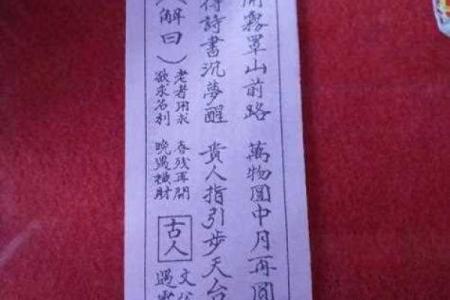 開霧罩山前路　萬物圓中月再圓
得詩書沉夢醒　貴人指引步天台
解曰）
老者用求　春殘再開
欲求名利　晚遇橫財
古人
文
遇